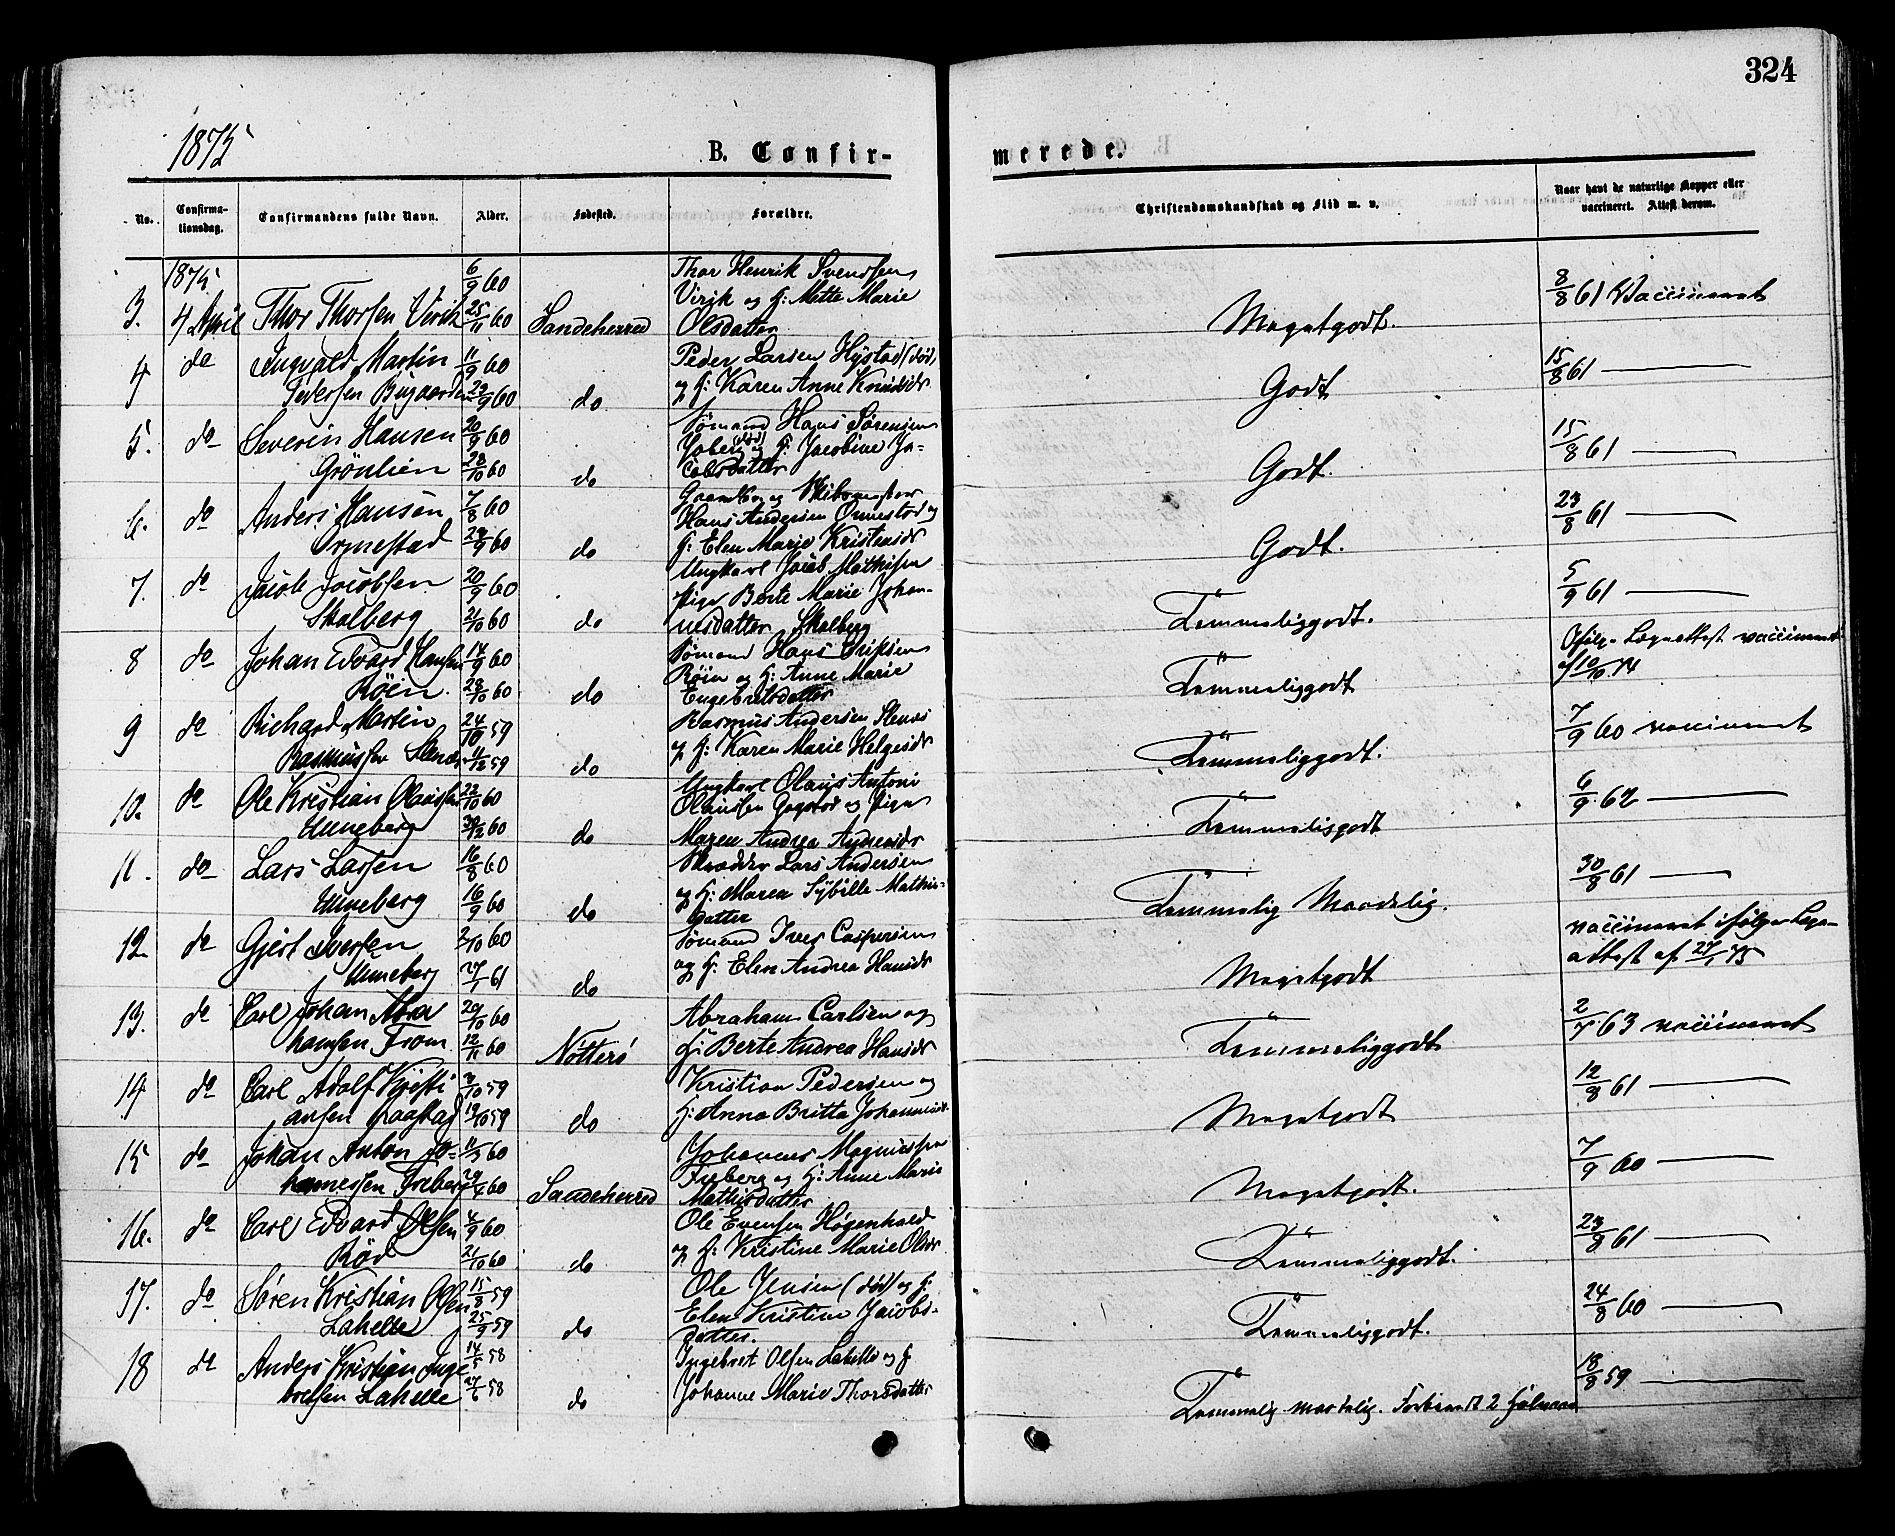 324
1875
B. Confir-
merede.
No.
Confirma-
tionsdag.
Confirmandens fulde Navn.
Alder.
Fødested.
Forældre.
Christendomskundskab og Flid m. v.
Naar havt de naturlige Kopper eller
vaccineret. Attest derom.
1875
6/9 60
Thor Henrik Svendsen
3. 4 April Thor Thorsen Virik 25/11 60 Sandeherred
Virik og H: Mette Marie
Olsdatter
Megetgodt.
8/8 61 Vaccineret
4 do Ingvald Martin 11/9 60
Pedersen Bugaarden 29/9 60 do
Peder Larsen Hystad (død)
og H: Karen Anne Knudsdr
Godt
15/8 61
5. do Severin Hansen 20/9 60
Grönlien 28/10 60 do
Sömand Hans Sörensen
(død) og H: Jacobine Ja-
cobsdatter
Godt.
15/8 61
6. do Anders Hansen 7/8 60
Ormestad 29/9 60 do
Gaardbr. og
Hans Andersen Ormestad og
H: Elen Marie Kristensdr
Godt.
23/8 61
7. do Jacob Jacobsen 20/9 60
Skalberg 21/10 60 do
Ungkarl Jacob Mathisen
Pige Berte Marie Johan-
nesdatter Skalberg
Temmeliggodt.
5/9 61
8 do Johan Edvard Hansen 14/9 60
Röen 28/10 60 do
Sömand Hans
Röen og H: Anne Marie
Engebretsdatter
Temmeliggodt
Ifölge Lægeattest vaccineret
af 10/10 74
9 do Richard Martin 24/10 59
Rasmussen Stenæs 11/12 59 do
Rasmus Andersen Stenæs
og H: Karen Marie Helgesdr
Temmeliggodt.
7/9 60 vaccineret
10. do Ole Kristian Olaussen 22/10 60
Unneberg 30/12 60 do
Ungkarl Olaus Antoni
Olaussen Gogstad og Pige
Maren Andrea Andreasdr
Temmeliggodt
6/9 62
11. do Lars Larsen 16/8 60
Unneberg 16/9 60 do
Skrædder Lars Andersen
og H: Maren Sybille Mathis-
datter
Temmelig Maadelig.
30/8 61
12. do Gjert Iversen 2/10 60
Unneberg 27/1 61 do
Sömand Iver Caspersen
og H: Elen Andrea Hansdr
Megetgodt
vaccineret ifölge Læge-
attest af 27/1 75
13. do Carl Johan Abra
hamsen From 29/10 60
12/11 60 Nötterö
Abraham Carlsen og
H: Berte Andrea Hansdr
Temmeliggodt
2/7 63 vaccineret
14. do Carl Adolf Kristi
ansen Haastad 3/10 59
19/10 59 do
Kristian Pedersen og
H: Anna Britta Johannesdr.
Megetgodt
12/8 61
15 do Johan Anton Jo-
hannessen Freberg 11/3 60
29/4 60 Sandeherred
Johannes Magnussen
Freberg og H: Anne Marie
Mathisdatter
Megetgodt.
7/9 60
16. do Carl Edvard Olsen 4/9 60
Röd 21/10 60 do
Ole Evensen Högenhald
og H: Kristine Marie Olsdr
Temmeliggodt.
23/8 61
17. do Sören Kristian Olsen 15/8 59
Lahelle 25/9 59 do
Ole Jensen (død) og H:
Elen Kristine Jacobs-
datter.
Temmeliggodt.
24/8 60
18 do Anders Kristian Inge
bretsen Lahelle 14/5 58
27/6 58 do
Ingebret Olsen Lahelle og H
Johanne Marie Thorsdatter
Temmelig maadelig. 2
18/8 59